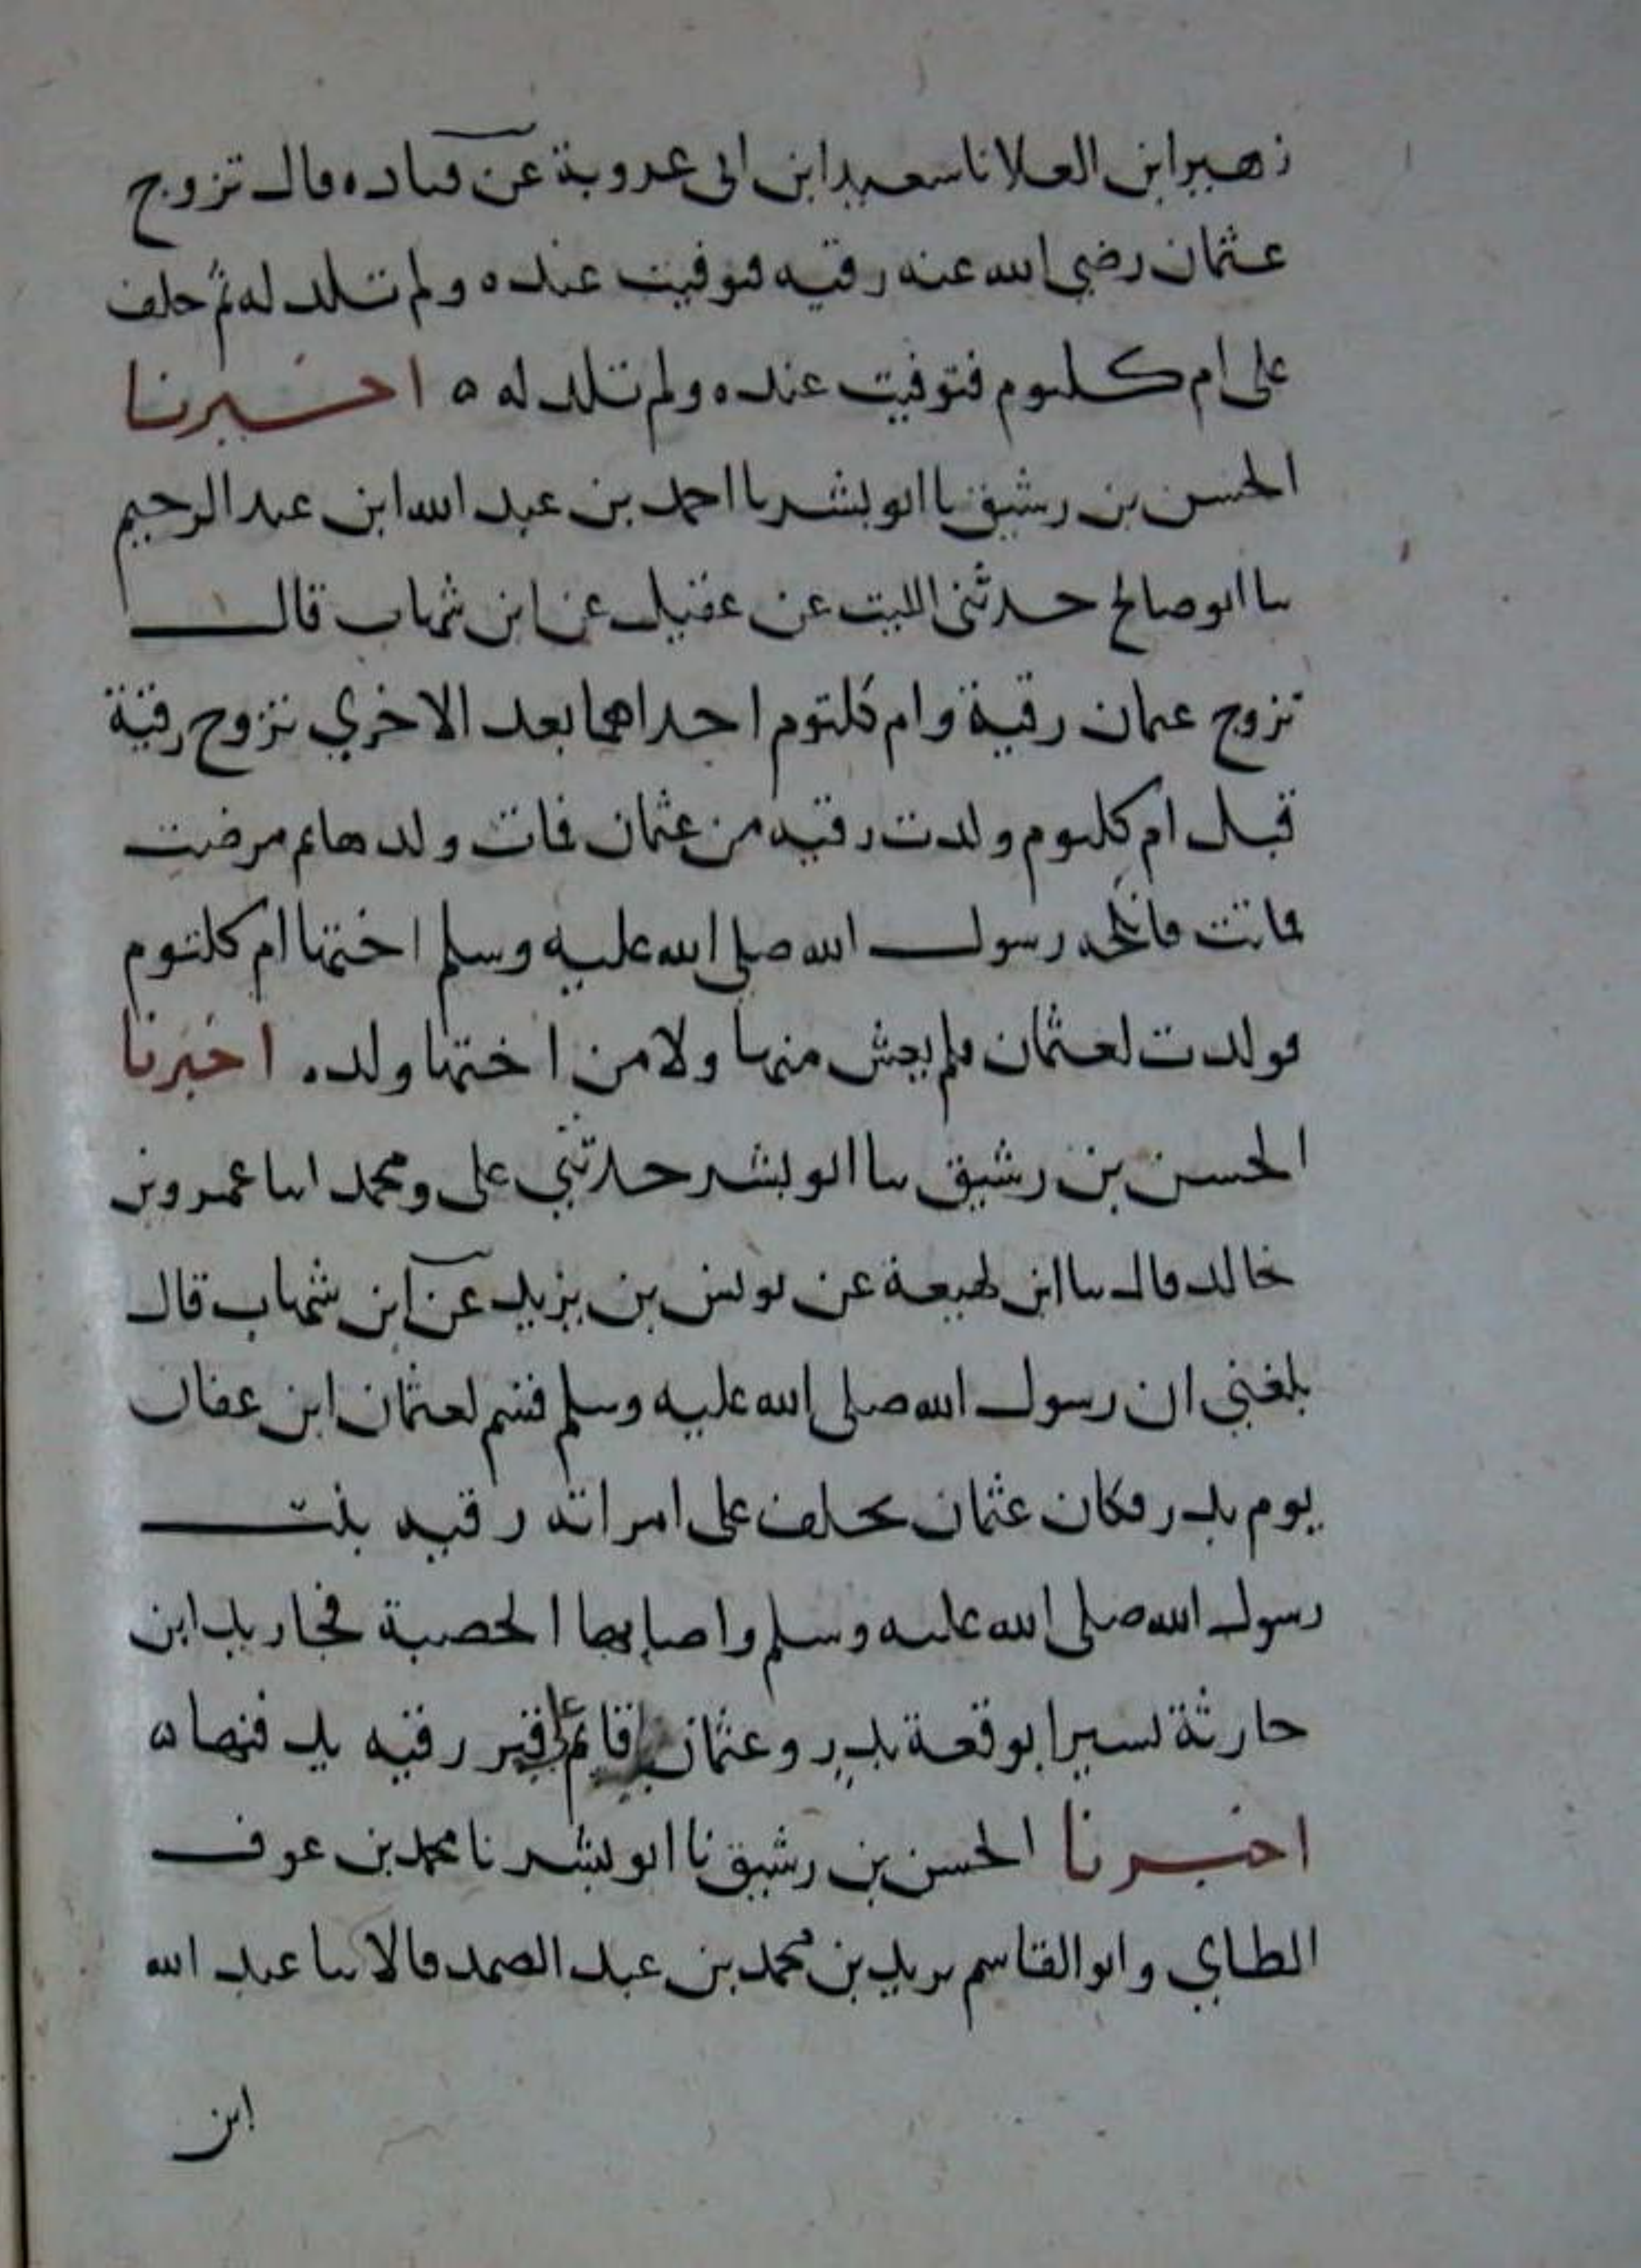 زهير ابن العلا نا سعيد ابن ابى عروبة عن قتاده قال تزوج
عثمان رضي الله عنه رقيه فتوفيت عنده ولم تلد له ثم خلف
على ام كلثوم فتوفيت عنده ولم تلد له ه اخبرنا
الحسن بن رشيق نا ابو بشر نا احمد بن عبد الله ابن عبد الرحيم
نا ابو صالح حدثني الليث عن عقيل عن ابن شهاب قال
تزوج عثمان رقية وام كلثوم احداهما بعد الاخري تزوج رقية
قبل ام كلثوم ولدت رقيه من عثمان فمات ولدها ثم مرضت
فماتت فانكحه رسول الله صلى الله عليه وسلم اختها ام كلثوم
فولدت لعثمان فلم يعش منها ولا من اختها ولد ه اخبرنا
الحسن بن رشيق نا ابو بشر حدثني على ومحمد ابنا عمرو بن
خالد قال نا ابن لهيعة عن يونس بن يزيد عن ابن شهاب قال
بلغني ان رسول الله صلى الله عليه وسلم قسم لعثمان ابن عفان
يوم بدر فكان عثمان تخلف على امراته رقيه بنت
رسول الله صلى الله عليه وسلم واصابها الحصبة فجا زيد ابن
حارثة بسيرا بوقعة بدر وعثمان قائم على قبر رقيه يدفنها ه
اخبرنا الحسن بن رشيق نا ابو بشر نا محمد بن عوف
الطاي وابو القاسم يزيد بن محمد بن عبد الصمد قالا نا عبد الله
ابن